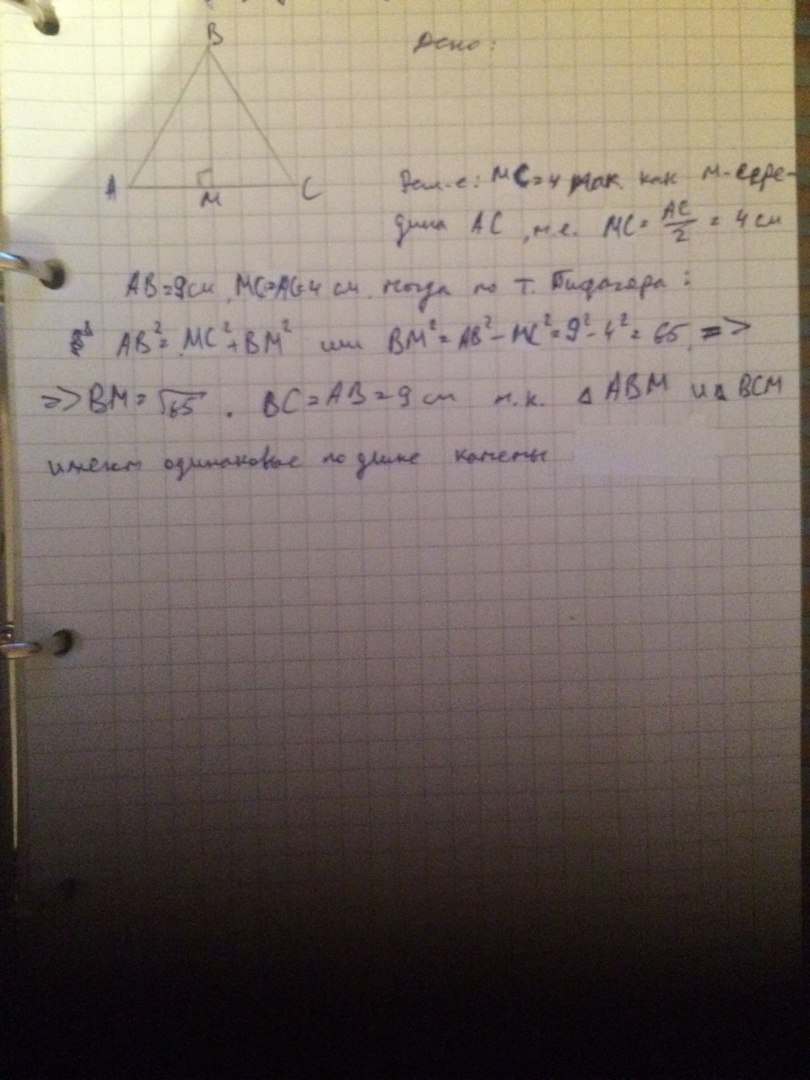 B
Дано:
A
M
C
Док-е: MC=4 так как M-сере-
дина AC, т.е. MC= AC/2 = 4 см
AB=9см, MC=AC=4 см. тогда по т. Пифагора:
AB²= MC²+BM² или BM²= AB²-MC²=9²-4²= 65 =>
=> BM= √65 . BC=AB=9 см т.к. △ ABM и △ BCM
имеют одинаковые по длине катеты